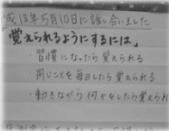 成18年5月10日に話し合いました
「覚えられるようにするには」
習慣になったら覚えられる
同じことを毎日したら覚えられる
・動きながら何かをしたら覚えられ